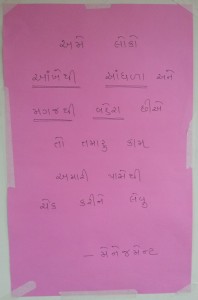 અમે લોકો
આંખેથી આંધળા અને
મગજથી બહેરા છીએ
તો તમારૂ કામ
અમારી પાસેથી
ચેક કરીને લેવુ
- મેનેજમેન્ટ